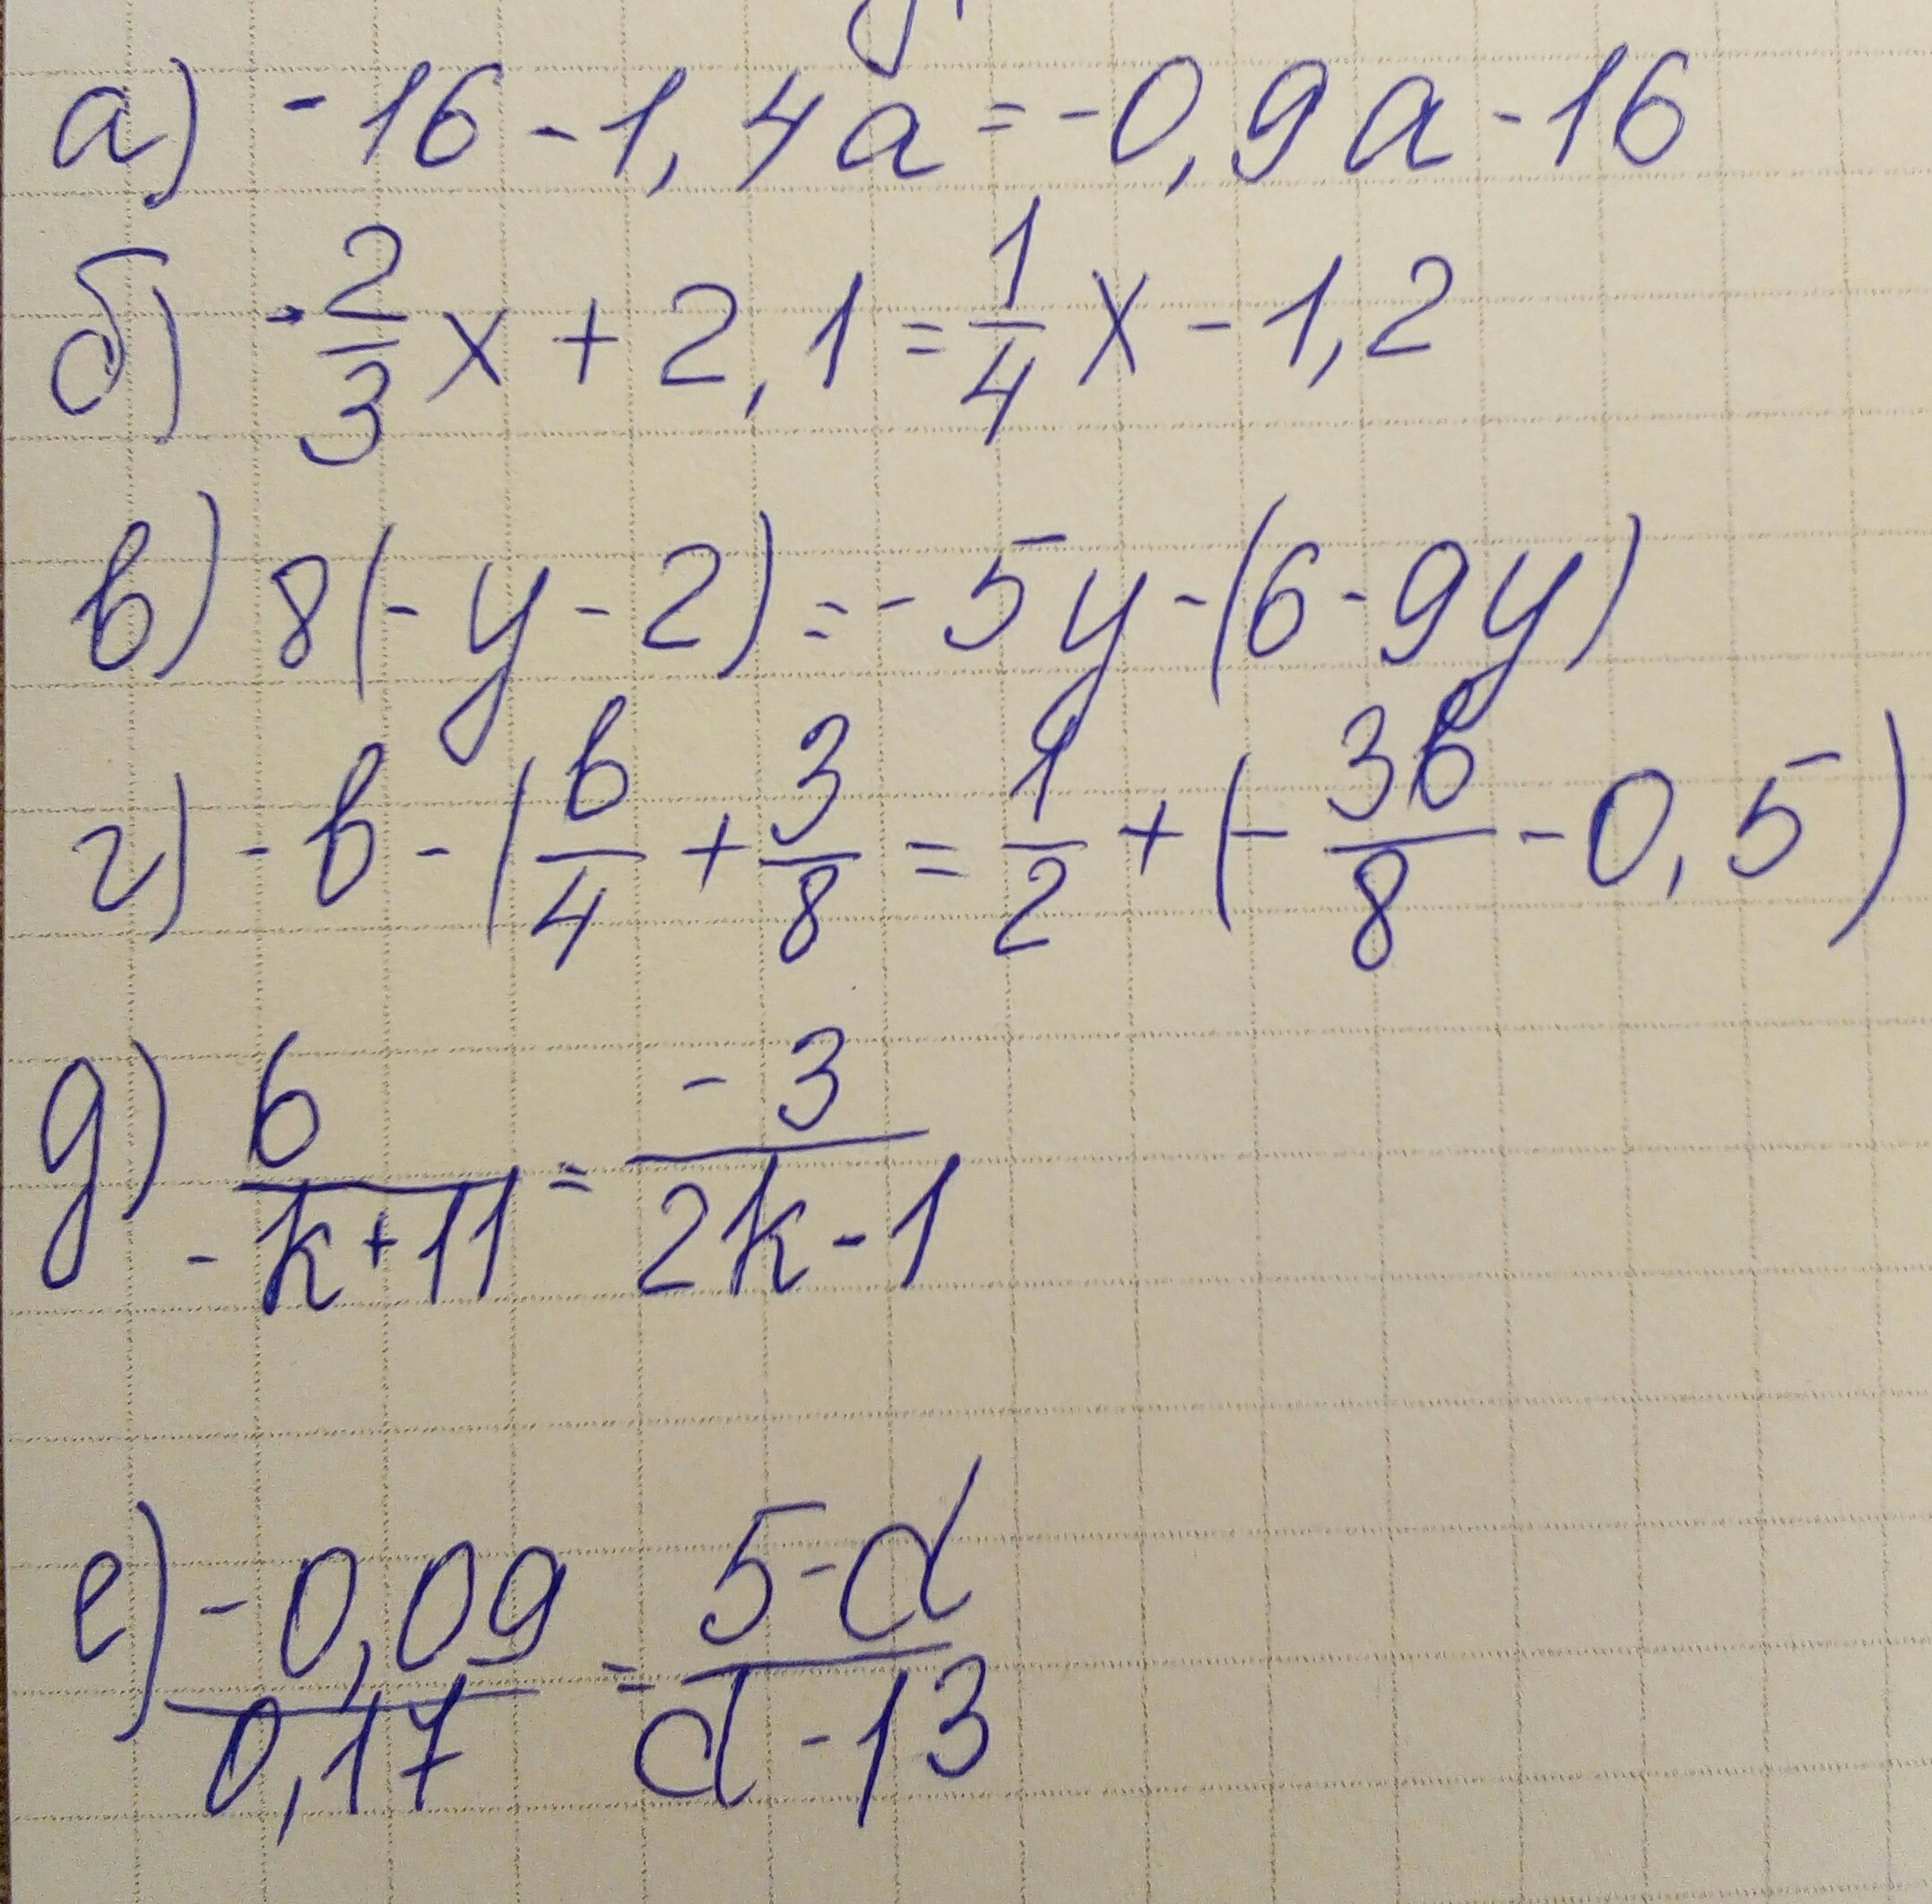 а) -16 - 1,4a = -0,9a - 16
б) -2/3 x + 2,1 = 1/4 x - 1,2
в) 8(-y - 2) = -5y - (6 - 9y)
г) -b - (b/4 + 3/8 = 1/2 + (-3b/8 - 0,5)
д) 6/-k+11 = -3/2k-1
е) -0,09/0,17 = 5-d/d-13